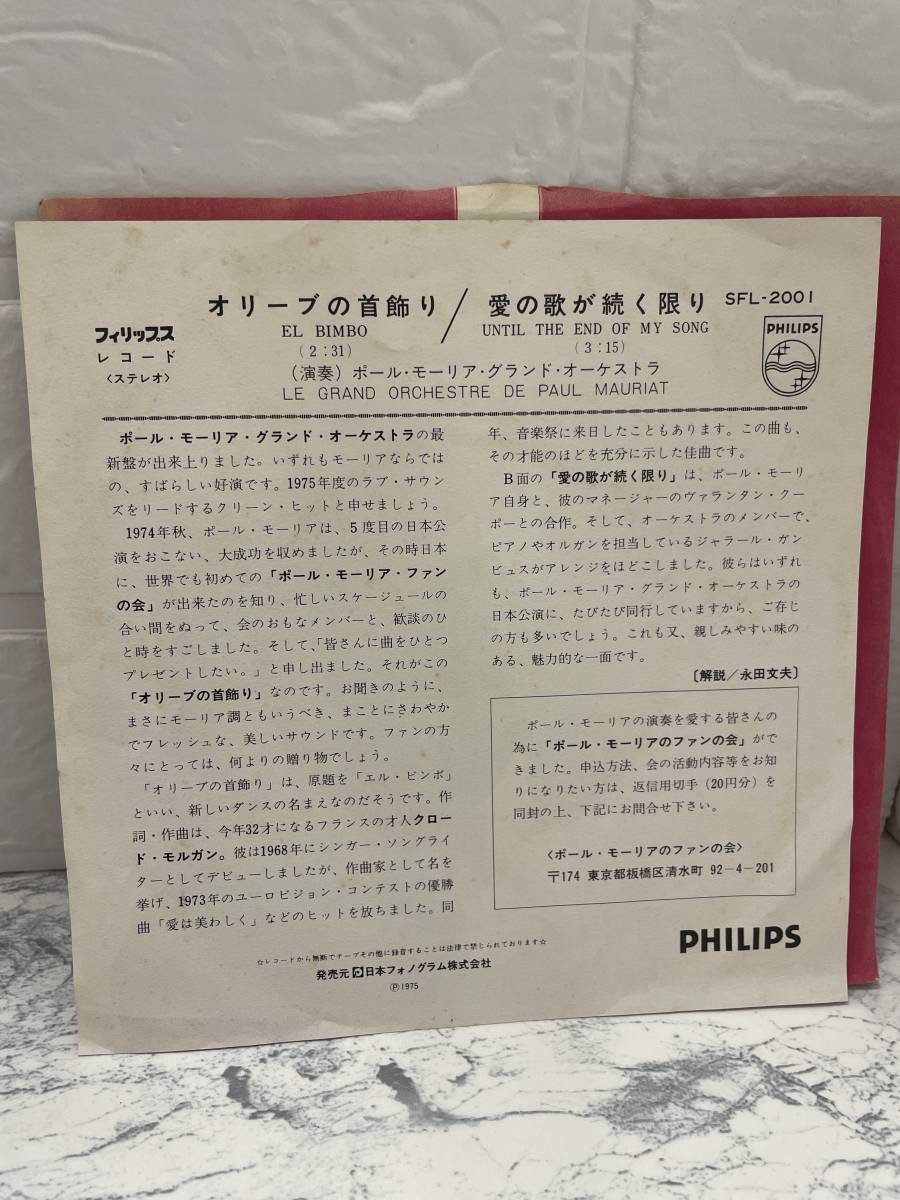 オリーブの首飾り／愛の歌が続く限り SFL-2001
EL BIMBO UNTIL THE END OF MY SONG
(2:31) (3:15)
フィリップス
レコード
〈ステレオ〉
PHILIPS
(演奏) ポール・モーリア・グランド・オーケストラ
LE GRAND ORCHESTRE DE PAUL MAURIAT
ポール・モーリア・グランド・オーケストラの最
新盤が出来上りました。いずれもモーリアならでは
の、すばらしい好演です。1975年度のラブ・サウン
ズをリードするクリーン・ヒットと申せましょう。
1974年秋、ポール・モーリアは、5度目の日本公
演をおこない、大成功を収めましたが、その時日本
に、世界でも初めての「ポール・モーリア・ファン
の会」が出来たのを知り、忙しいスケージュールの
合い間をぬって、会のおもなメンバーと、歓談のひ
と時をすごしました。そして、「皆さんに曲をひとつ
プレゼントしたい。」と申し出ました。それがこの
「オリーブの首飾り」なのです。お聞きのように、
まさにモーリア調ともいうべき、まことにさわやか
でフレッシュな、美しいサウンドです。ファンの方
々にとっては、何よりの贈り物でしょう。
「オリーブの首飾り」は、原題を「エル・ビンボ」
といい、新しいダンスの名まえなのだそうです。作
詞・作曲は、今年32才になるフランスの才人クロー
ド・モルガン。彼は1968年にシンガー・ソングライ
ターとしてデビューしましたが、作曲家として名を
挙げ、1973年のユーロビジョン・コンテストの優勝
曲「愛は美わしく」などのヒットを放ちました。同
年、音楽祭に来日したこともあります。この曲も、
その才能のほどを充分に示した佳曲です。
B面の「愛の歌が続く限り」は、ポール・モーリ
ア自身と、彼のマネージャーのヴァランタン・クー
ポーとの合作。そして、オーケストラのメンバーで、
ピアノやオルガンを担当しているジャラール・ガン
ビュスがアレンジをほどこしました。彼らはいずれ
も、ポール・モーリア・グランド・オーケストラの
日本公演に、たびたび同行していますから、ご存じ
の方も多いでしょう。これも又、親しみやすい味の
ある、魅力的な一面です。
〔解説／永田文夫〕
ポール・モーリアの演奏を愛する皆さんの
為に「ポール・モーリアのファンの会」がで
きました。申込方法、会の活動内容等をお知
りになりたい方は、返信用切手（20円分）を
同封の上、下記にお問合せ下さい。
〈ポール・モーリアのファンの会〉
〒174 東京都板橋区清水町 92-4-201
PHILIPS
☆レコードから無断でテープその他に録音することは法律で禁じられております☆
発売元 日本フォノグラム株式会社
Ⓟ1975